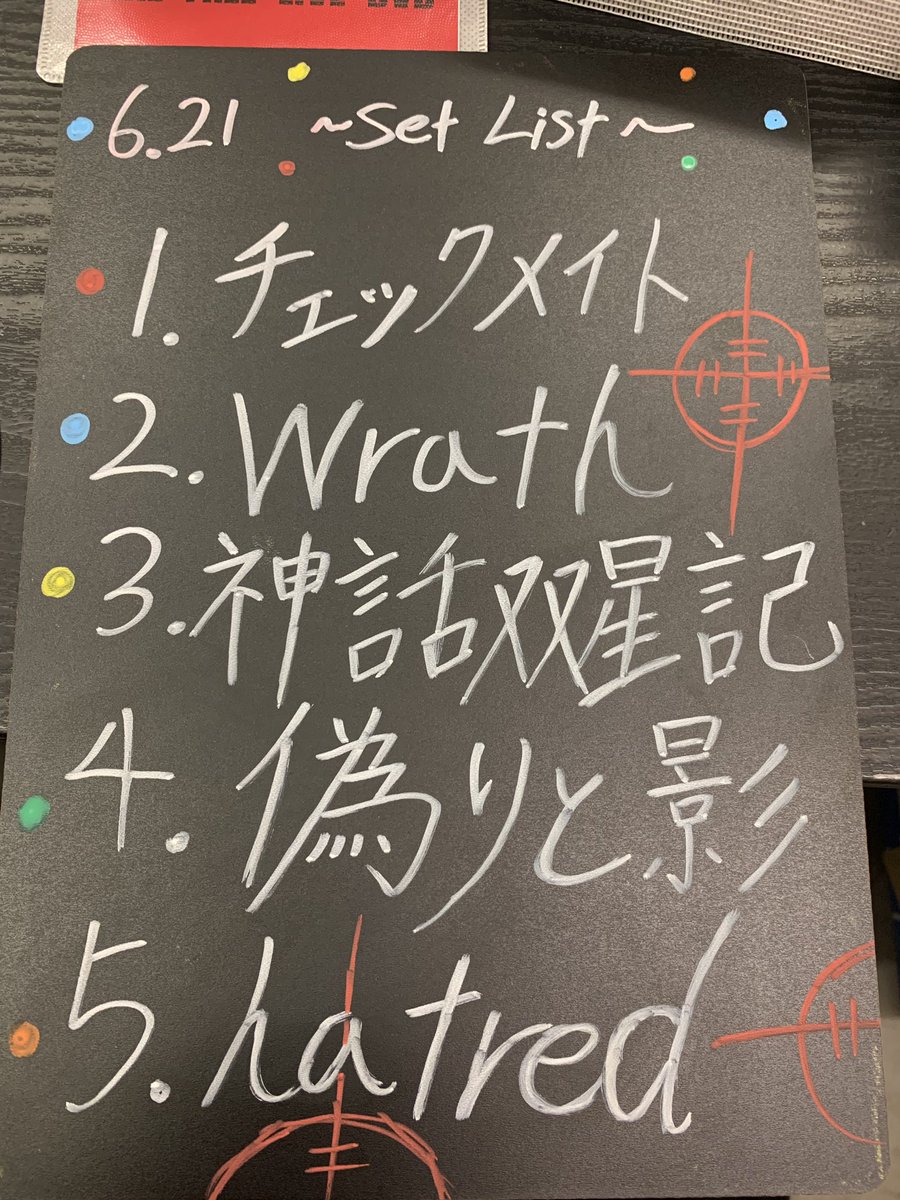 6.21 ~Set List~
1. チェックメイト
2. Wrath
3. 神話双星記
4. 偽りと影
5. hatred